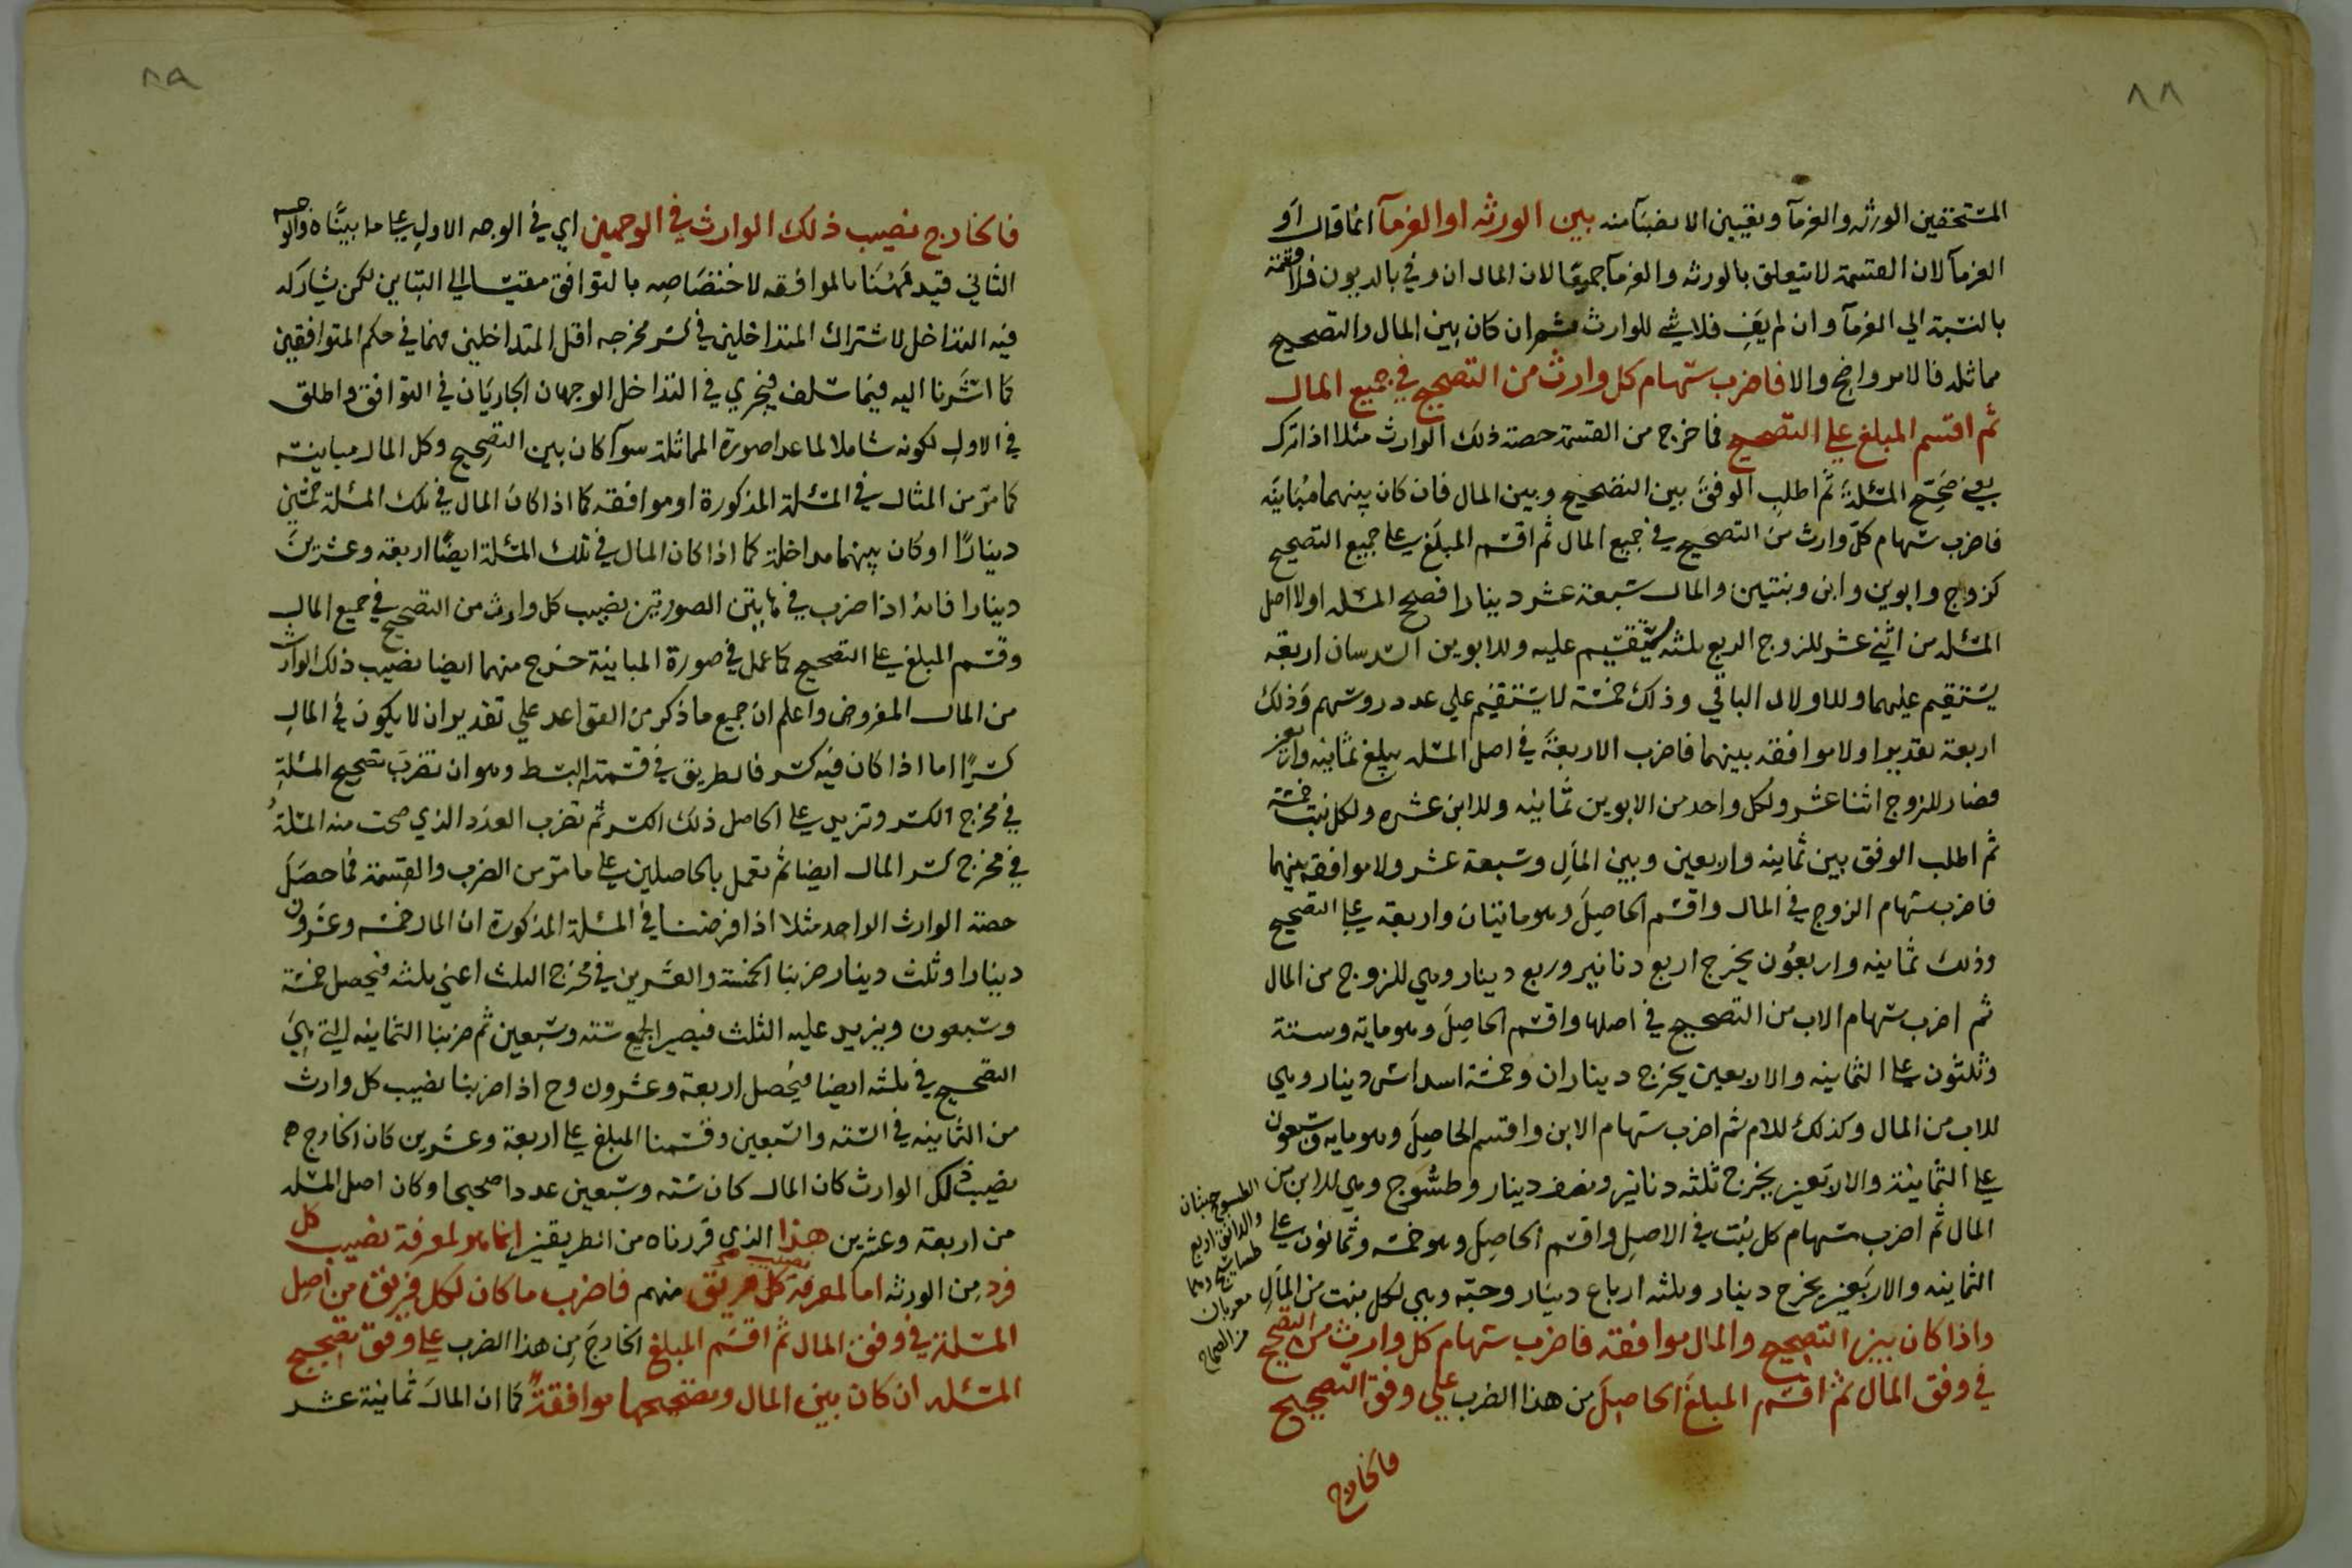 ٨٨
المستحقين الورثه والغرمآ وتعيين الانصبآ منه بين الورثه او الغرمآ انما قال او
الغرمآ لان القسمة لا تتعلق بالورثه والغرمآ جميعًا لان المال ان وفي بالديون فلا قسمة
بالنسبة الي الغرمآ وان لم يَفِ فلا شي للوارث ثم ان كان بين المال والتصحيح
مماثله فالامر واضح والا فاضرب سهام كل وارث من التصحيح في جميع المال
ثم اقسم المبلغ علي التصحيح فما خرج من القسمة حصة ذلك الوارث مثلا اذا ترك
يعني صَحِّح المسئلة ثم اطلب الوفق بين التصحيح وبين المال فان كان بينهما مباينه
فاضرب سهام كل وارث من التصحيح في جميع المال ثم اقسم المبلغ علي جميع التصحيح
كزوج وابوين وابن وبنتين والمال سبعة عشر دينارا فصحح المسئله اولا اصل
المسئله من اثني عشر للزوج الربع ثلثه يستقيم عليه وللابوين السدسان اربعة
يستقيم عليهما وللاولاد الباقي وذلك خمسة لا يستقيم علي عدد روسهم وذلك
اربعة تقديرا ولا موافقة بينهما فاضرب الاربعة في اصل المسئله يبلغ ثمانيه واربعين
فصار للزوج اثنا عشر ولكل واحد من الابوين ثمانيه وللابن عشره ولكل بنت خمسة
ثم اطلب الوفق بين ثمانيه واربعين وبين المال وسبعة عشر ولا موافقة بينهما
فاضرب سهام الزوج في المال واقسم الحاصل وهو مايتان واربعة علي التصحيح
وذلك ثمانيه واربعون يخرج اربع دنانير وربع دينار وهي للزوج من المال
ثم اضرب سهام الاب من التصحيح في اصلها واقسم الحاصل وهو مايه وستة
وثلثون علي الثمانيه والاربعين يخرج ديناران وخمسة اسداس دينار وهي
للاب من المال وكذلك للام ثم اضرب سهام الابن واقسم الحاصل وهو مايه وسبعون
علي الثمانية والاربعين يخرج ثلثه دنانير ونصف دينار وطسُّوج وهي للابن من
المال ثم اضرب سهام كل بنت في الاصل واقسم الحاصل وهو خمسه وثمانون علي
الثمانيه والاربعين يخرج دينار وثلثه ارباع دينار وحبّه وهي لكل بنت من المال
واذا كان بين التصحيح والمال موافقه فاضرب سهام كل وارث من التصحيح
في وفق المال ثم اقسم المبلغ الحاصل من هذا الضرب علي وفق التصحيح
فالخارج
الطسوج حبتان
والدانق اربع
طساسيج وهما
معربان
من الصحاح
٨٩
فالخارج نصيب ذلك الوارث في الوجهين اي في الوجه الاول علي ما بيناه والوجه
الثاني قيد همنا بالموافقه لاختصاصه بالتوافق مقيسا الي التباين لكن يشاركه
فيه التداخل لاشتراك المتداخلين في كسر مخرجه اقل المتداخلين فهما في حكم المتوافقين
كما اشرنا اليه فيما سلف فيجري في التداخل الوجهان الجاريان في التوافق واطلق
في الاول لكونه شاملا لما عدا صورة المماثلة سوآ كان بين التصحيح وكل المال مباينه
كما مرّ من المثال في المسئلة المذكورة او موافقه كما اذا كان المال في تلك المسئلة خمسين
دينارًا او كان بينهما مداخلة كما اذا كان المال في تلك المسئلة ايضًا اربعة وعشرين
دينارا فانه اذا ضرب في هاتين الصورتين نصيب كل وارث من التصحيح في جميع المال
وقسم المبلغ علي التصحيح كما عمل في صورة المباينة خرج منهما ايضا نصيب ذلك الوارث
من المال المفروض واعلم ان جميع ما ذكر من القواعد علي تقدير ان لا يكون في المال
كسرًا اما اذا كان فيه كسر فالطريق في قسمته البسط وهو ان تضرب تصحيح المسئلة
في مخرج الكسر وتزيد علي الحاصل ذلك الكسر ثم تضرب العدد الذي صحت منه المسئلة
في مخرج كسر المال ايضا ثم تعمل بالحاصلين علي ما مرّ من الضرب والقسمة فما حصل
حصة الوارث الواحد مثلا اذا فرضنا في المسئلة المذكورة ان المال خمسه وعشرون
دينارا وثلث دينار ضربنا الخمسة والعشرين في مخرج الثلث اعني ثلثه فيحصل خمسة
وسبعون ويزيد عليه الثلث فيصير الجميع ستة وسبعين ثم ضربنا الثمانيه التي هي
التصحيح في ثلثه ايضا فيحصل اربعة وعشرون وح اذا ضربنا نصيب كل وارث
من الثمانيه في الستة والسبعين وقسمنا المبلغ علي اربعة وعشرين كان الخارج
نصيب ذلك الوارث كان المال كان ستة وسبعين عددا صحيحا وكان اصل المسئله
من اربعة وعشرين هذا الذي قررناه من الطريقين انما هو لمعرفة نصيب كل
فرد من الورثه اما لمعرفة نصيب كل فريق منهم فاضرب ما كان لكل فريق من اصل
المسئلة في وفق المال ثم اقسم المبلغ الخارج من هذا الضرب علي وفق تصحيح
المسئله ان كان بين المال وتصحيحها موافقةٌ كما ان المال ثمانية عشر